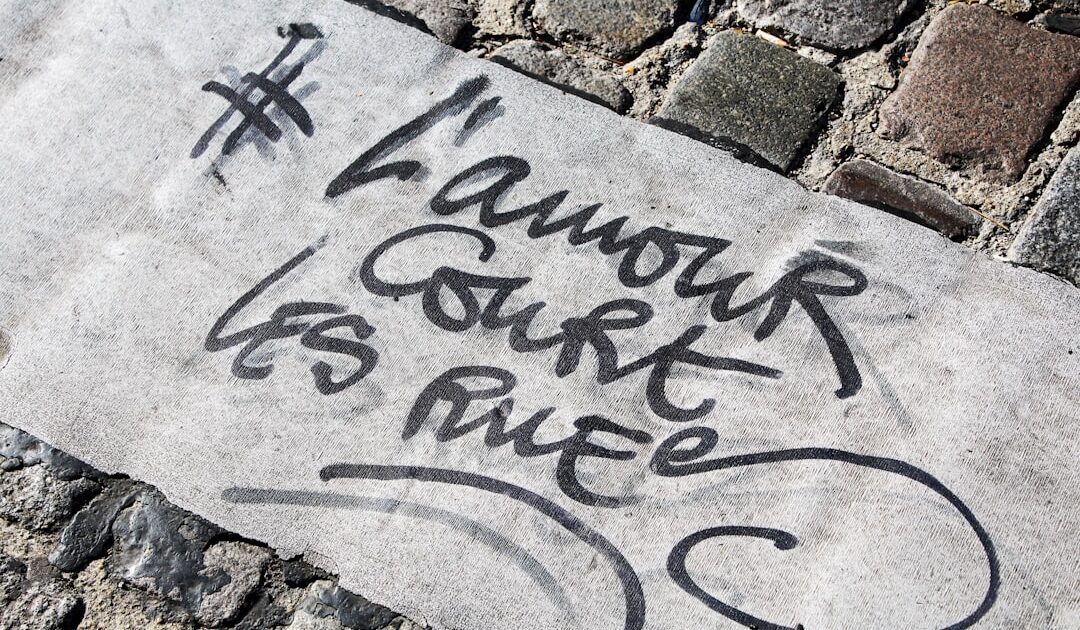 # L'amouR
CouRt
LES RuEs